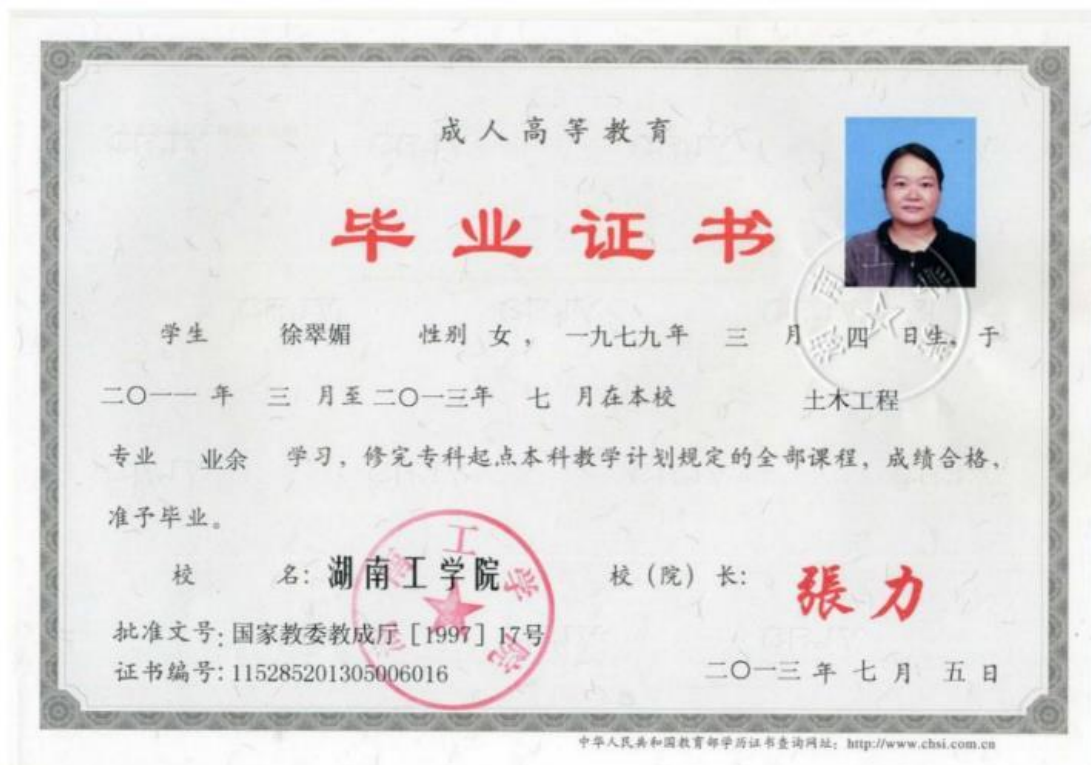 成人高等教育
毕业证书
学生 徐翠媚 性别 女, 一九七九年 三 月 四 日生, 于
二〇一一 年 三 月至 二〇一三年 七 月在本校 土木工程
专业 业余 学习, 修完专科起点本科教学计划规定的全部课程, 成绩合格,
准予毕业。
校 名: 湖南工学院 校(院) 长: 張力
批准文号: 国家教委教成厅［1997］17号
证书编号: 115285201305006016 二〇一三 年 七 月 五 日
湖南工学院
中华人民共和国教育部学历证书查询网址: http://www.chsi.com.cn